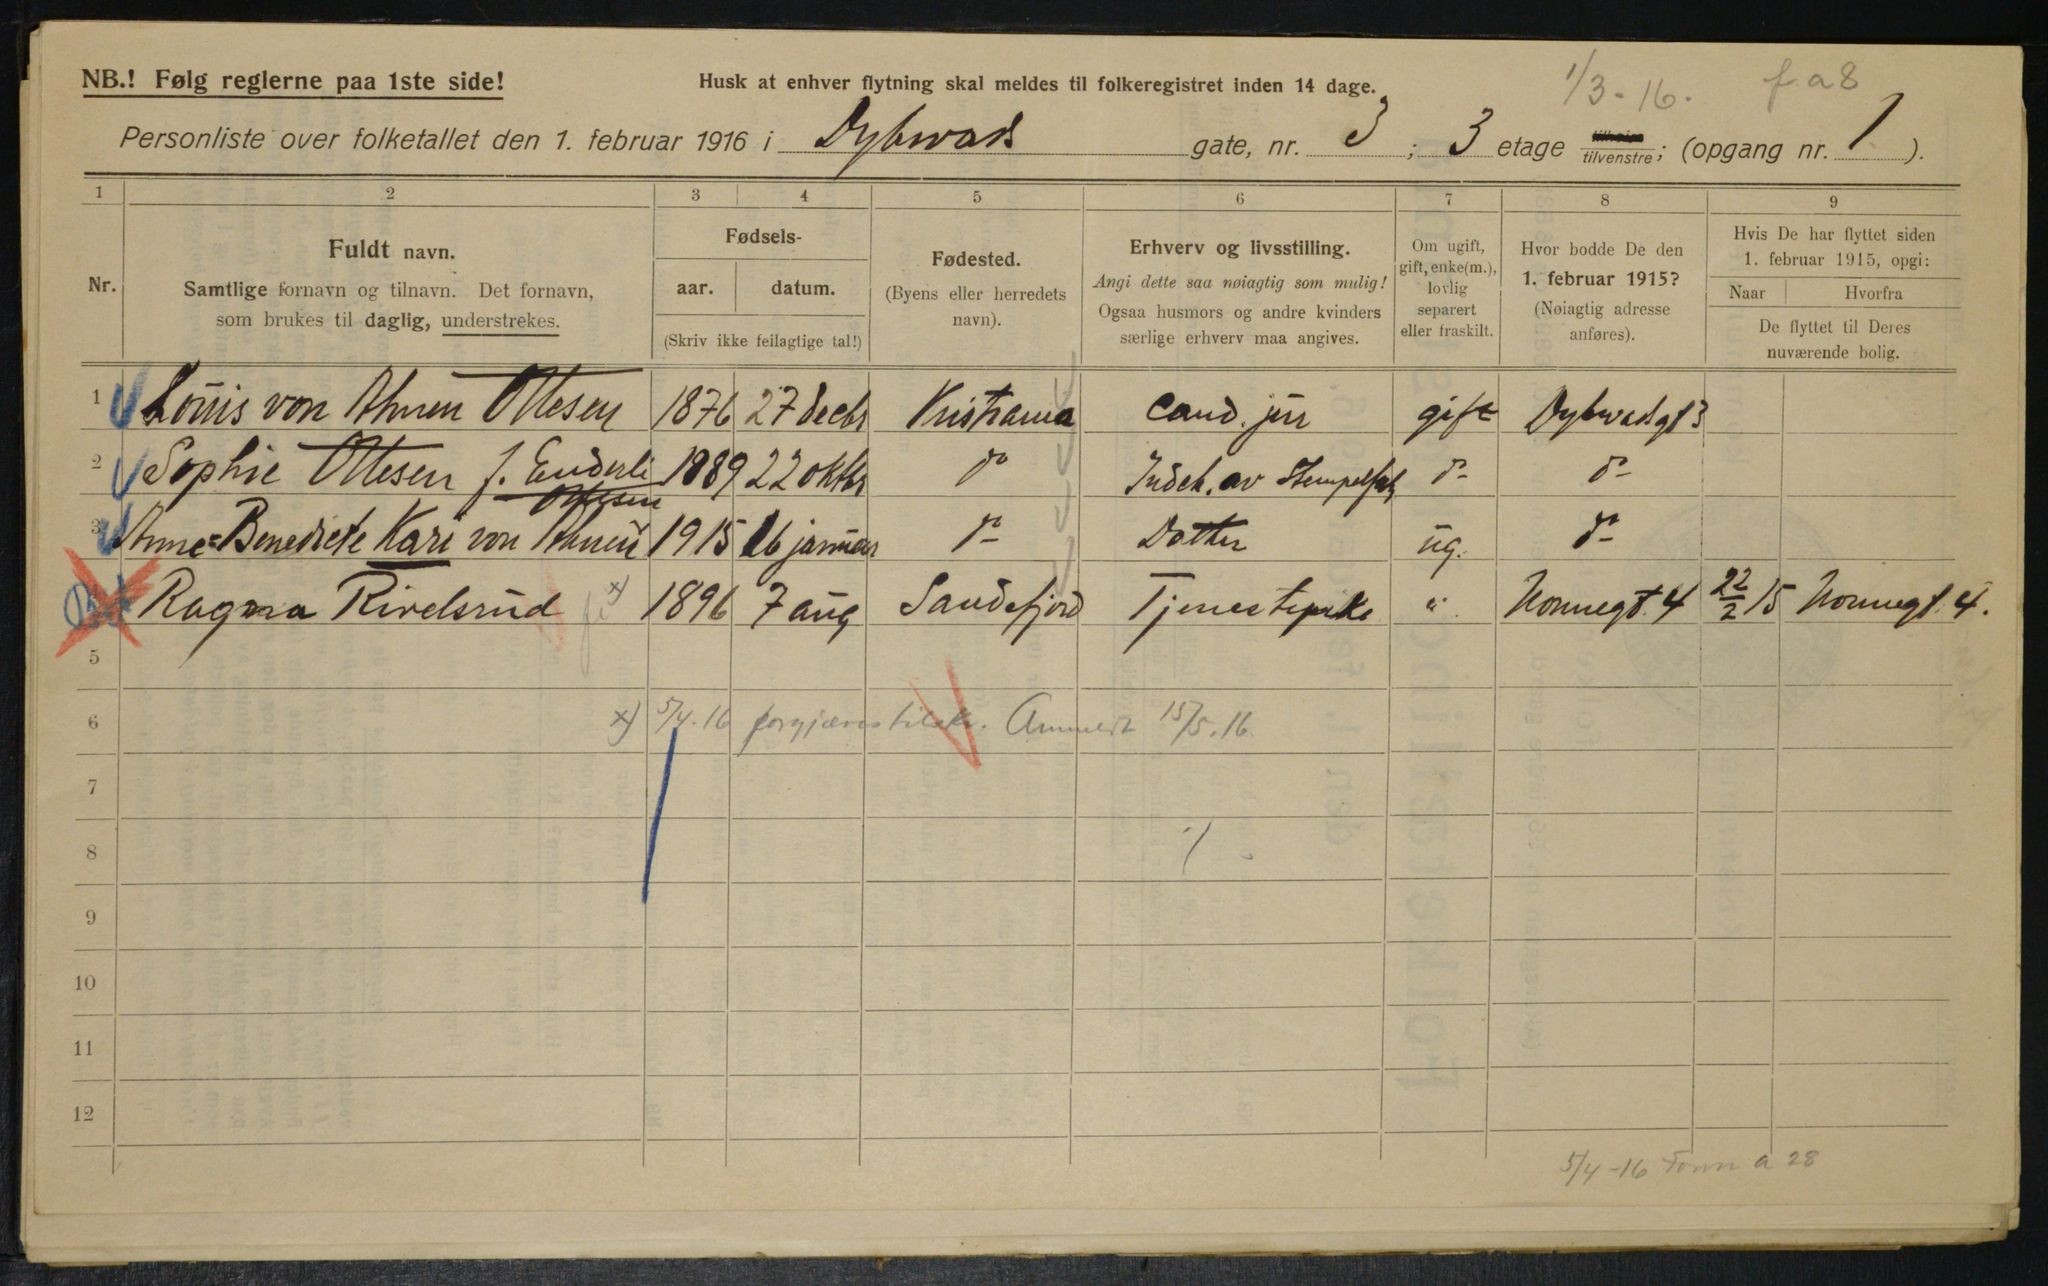 1/3-16. f. a 8
NB.! Følg reglerne paa 1ste side! Husk at enhver flytning skal meldes til folkeregistret inden 14 dage.
Personliste over folketallet den 1. februar 1916 i Dybwads gate, nr. 3; 3 etage tilhøire tilvenstre; (opgang nr. 1).
1 2 3 4 5 6 7 8 9
Nr.
Fuldt navn.
Samtlige fornavn og tilnavn. Det fornavn,
som brukes til daglig, understrekes.
Fødsels-
aar. datum.
(Skriv ikke feilagtige tal!)
Fødested.
(Byens eller herredets
navn).
Erhverv og livsstilling.
Angi dette saa nøiagtig som mulig!
Ogsaa husmors og andre kvinders
særlige erhverv maa angives.
Om ugift,
gift, enke(m.),
lovlig
separert
eller fraskilt.
Hvor bodde De den
1. februar 1915?
(Nøiagtig adresse
anføres).
Hvis De har flyttet siden
1. februar 1915, opgi:
Naar Hvorfra
De flyttet til Deres
nuværende bolig.
1 Louis von Ahnen Ottesen 1876 27 decbr Kristiania cand. jur gift Dybwadsgt 3
2 Sophie Ottesen f. Enderle 1889 22 oktbr do Indeh. av Stempelfabr do do
Ottesen
3 Anne-Benedicte Kari von Ahnen 1915 16 januar do Datter ug. do
Ragna Rivelsrud x) 1896 7 aug Sandefjord Tjenestepike " Nonnegt. 4 22/2 15 Nonnegt. 4.
5
6 x) 5/4.16 forgjæves tilsk. Anmeldt 15/5.16
7
8
9
10
11
12
5/4-16 Form a 28